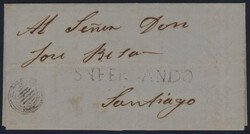 Al Señor Don
José Besa
SNFERNANDO
Santiago